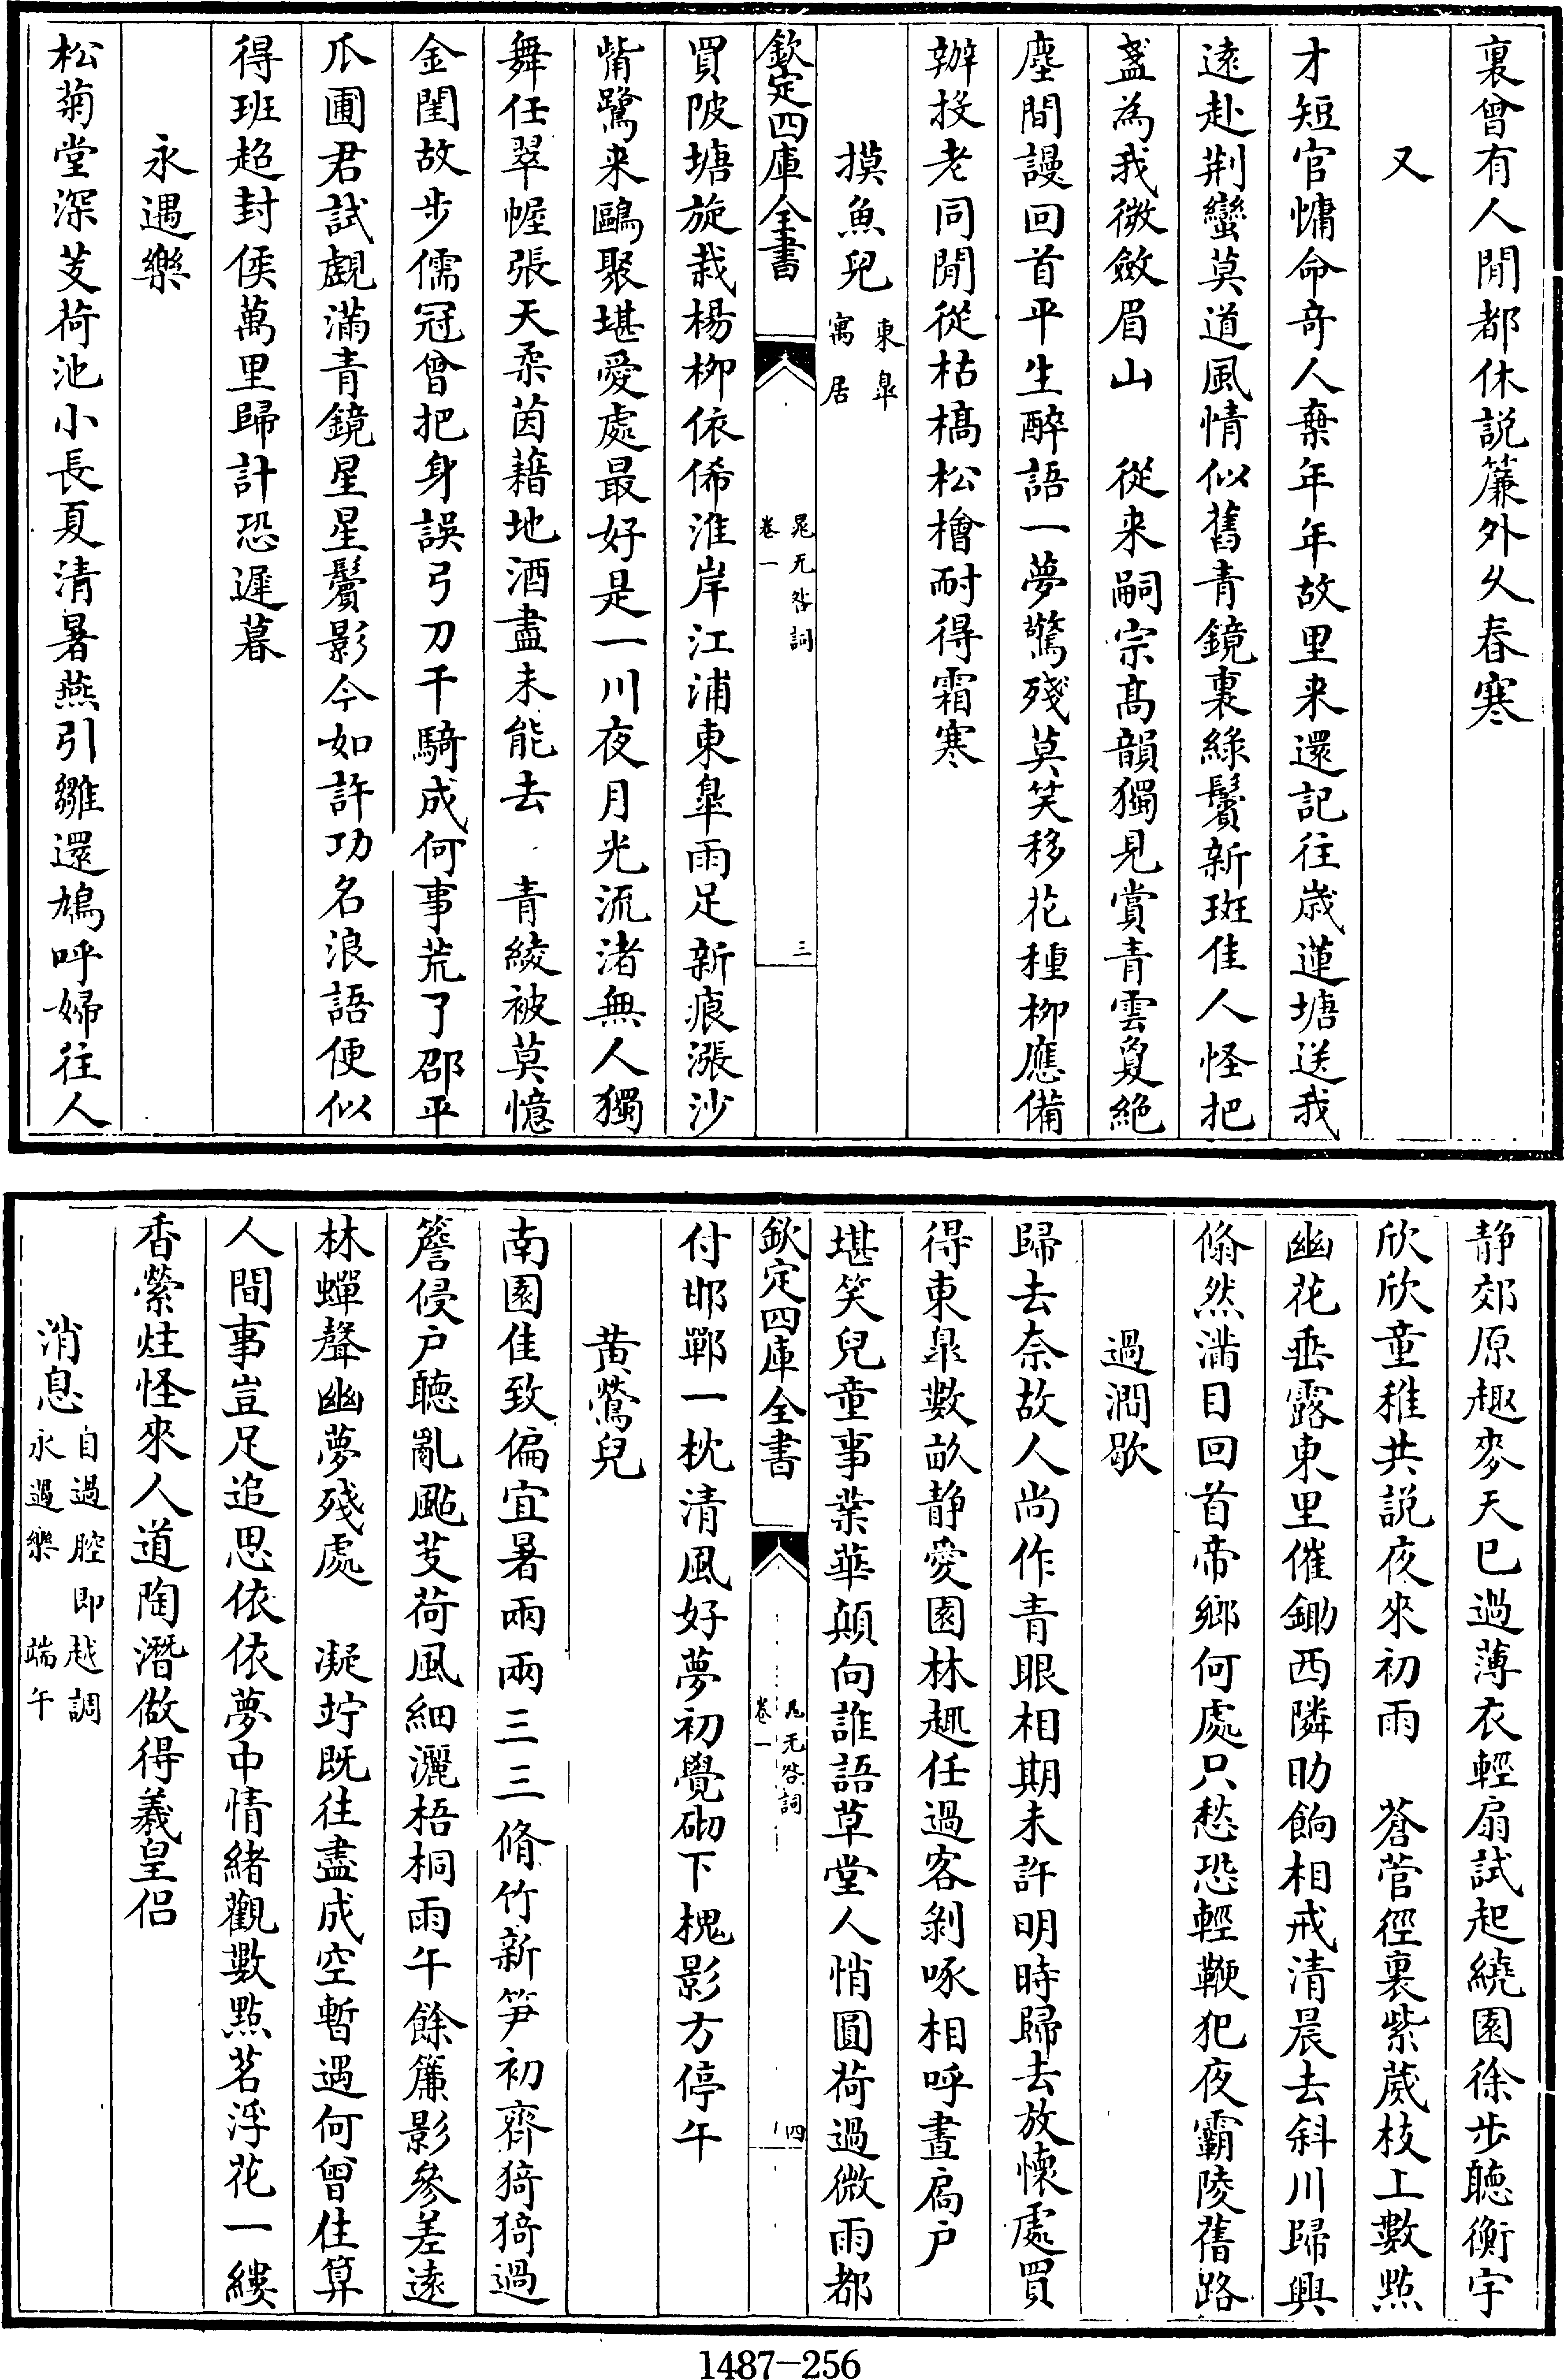 裏曾有人閒都休説簾外久春寒
又
才短官慵命奇人棄年年故里来還記往嵗蓮塘送我
逺赴荆蠻莫道風情似舊青鏡裏綠鬢新斑佳人怪把
盞為我微斂眉山　從来嗣宗髙韻獨見賞青雲敻絶
塵間謾回首平生醉語一夢驚殘莫笑移花種栁應備
辦投老同閒從枯槁松檜耐得霜寒
摸魚兒東臯寓居
欽定四庫全書
晁无咎詞
卷一
三
買陂塘旋栽楊栁依俙淮岸江浦東臯雨足新痕漲沙
觜鷺来鷗聚堪愛處最好是一川夜月光流渚無人獨
舞任翠幄張天柔茵藉地酒盡未能去　青綾被莫憶
金閨故步儒冠曾把身誤弓刀千騎成何事荒了邵平
爪圃君試覷滿青鏡星星鬢影今如許功名浪語便似
得班超封侯萬里歸計恐遲暮
永遇樂
松菊堂深芰荷池小長夏清暑燕引雛還鳩呼婦往人
静郊原趣麥天已過薄衣輕扇試起繞園徐步聽衡宇
欣欣童稚共説夜來初雨　蒼菅徑裏紫葳枝上數點
幽花垂露東里催鋤西隣助餉相戒清晨去斜川歸興
翛然滿目回首帝鄉何處只愁恐輕鞭犯夜霸陵舊路
過澗歇
歸去奈故人尚作青眼相期未許明時歸去放懷處買
得東臯數畝静愛園林趣任過客剝啄相呼晝扃户
堪笑兒童事業華顛向誰語草堂人悄圓荷過微雨都
欽定四庫全書
晁无咎詞
卷一
四
付邯鄲一枕清風好夢初覺砌下槐影方停午
黄鶯兒
南園佳致偏宜暑兩兩三三脩竹新笋初齊猗猗過
簷侵户聽亂颭芰荷風細灑梧桐雨午餘簾影參差逺
林蟬聲幽夢殘處　凝竚既往盡成空暫遇何曾住算
人間事豈足追思依依夢中情緒觀數點茗浮花一縷
香縈炷怪來人道陶潛做得羲皇侣
消息自過腔即越調永遇樂　端午
1487-256